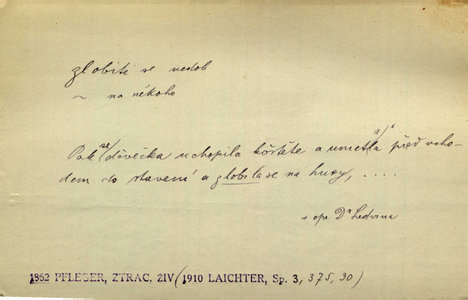 zlobiti se nedok
~ na někoho
Pak se děvečka uchopila koštěte a umetla před vcho-
dem do stavení a zlobila se na husy, ....
op. Dr
1862 PFLEGER, ZTRAC. ŽIV (1910 LAICHTER, Sp. 3, 375, 30)